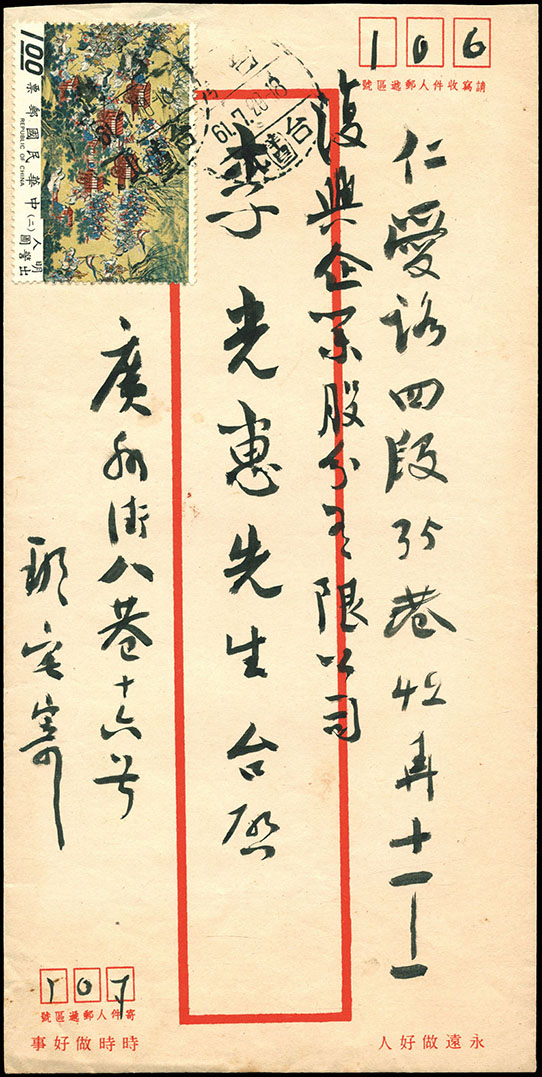 106
請寫收件人郵遞區號
仁愛路四段35巷42弄十一-一
復興企業股份有限公司
李光惠先生台啟
廣州街八巷十六号
宅寄
107
寄件人郵遞區號
永遠做好人
時時做好事
1.00
中華民國郵票
REPUBLIC OF CHINA
明人出警圖(二)
61.7.28.18
台